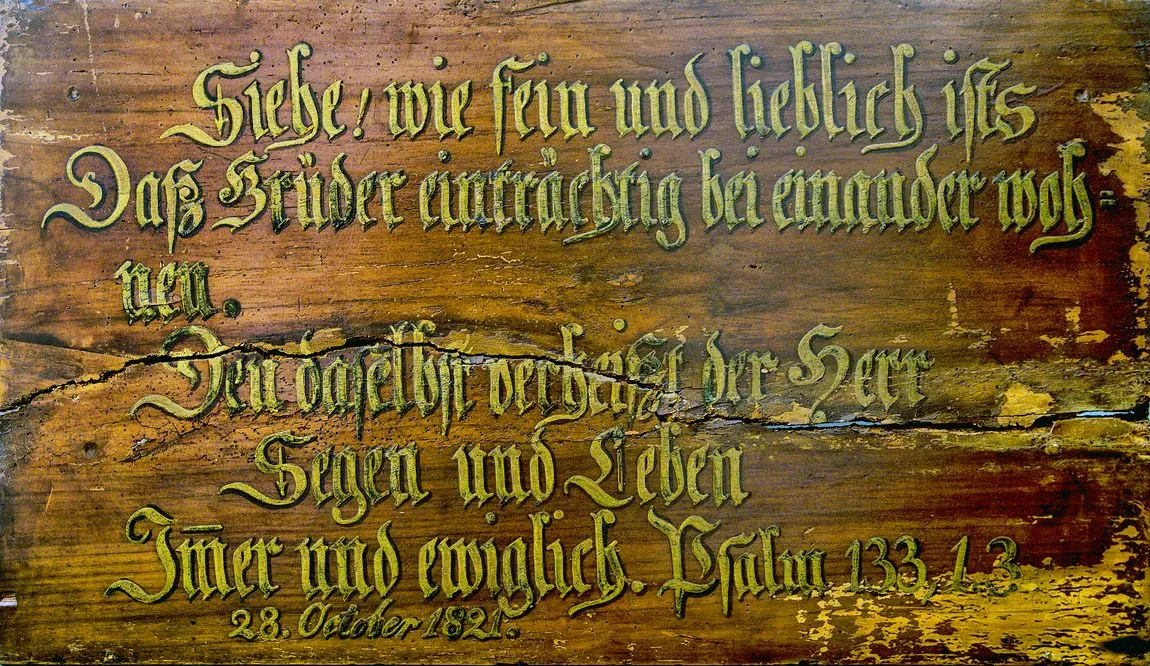 Siehe! wie fein und lieblich ists
Daß Brüder einträchtig bei einander woh=
nen.
Den daselbst verheißt der Herr
Segen und Leben
Im̅er und ewiglich. Psalm 133,1.3
28. October 1821.